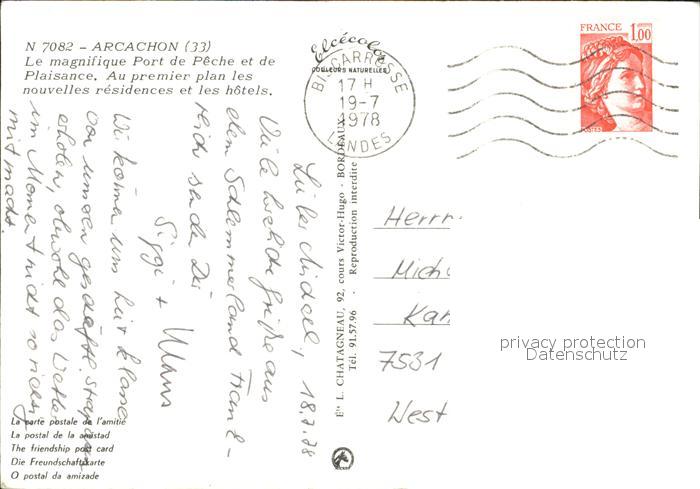 N 7082 – ARCACHON (33)
Le magnifique Port de Pêche et de
Plaisance. Au premier plan les
nouvelles résidences et les hôtels.
Elcécolor
COULEURS NATURELLES
BISCARROSSE
17 H
19-7
1978
LANDES
FRANCE
1,00
Lieber Michael, 18.7.78
Viele herzliche Grüße aus
dem Schlemmerland Frank-
reich senden Dir
Siggi + Klaus
Wir können uns hier klasse
von unserem
erholen, obwohl das Wetter
im Moment nicht so richtig
mitmacht.
Ets L. CHATAGNEAU, 92, cours Victor-Hugo - BORDEAUX
Tél. 91.57.96 - Reproduction interdite
Herrn
Mich
Kar
7531
West
privacy protection
Datenschutz
La carte postale de l'amitié
La postal de la amistad
The friendship post card
Die Freundschaftskarte
O postal da amizade